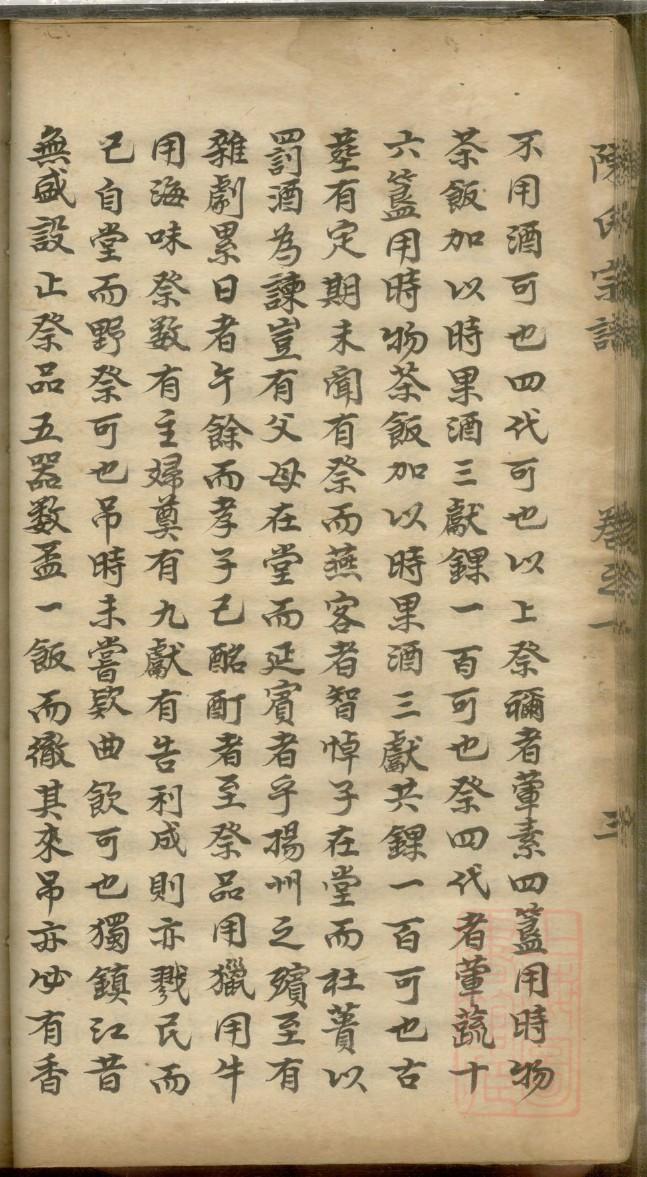 陳氏宗譜 卷之一 三
不用酒可也四代可也以上祭禰者葷素四簋用時物
茶飯加以時果酒三獻錁一百可也祭四代者葷蔬十
六簋用時物茶飯加以時果酒三獻共錁一百可也古
塟有定期未聞有祭而燕客者智悼子在堂而杜蕢以
罰酒為諫豈有父母在堂而延賓者乎揚州之殯至有
雜劇累日者午餘而孝子已酩酊者至祭品用獵用牛
用海味祭数有主婦奠有九獻有告利成則亦戮民而
已自堂而野祭可也吊時未嘗欵曲飲可也獨鎮江昔
無盛設止祭品五器数盂一飯而徹其來吊亦必有香